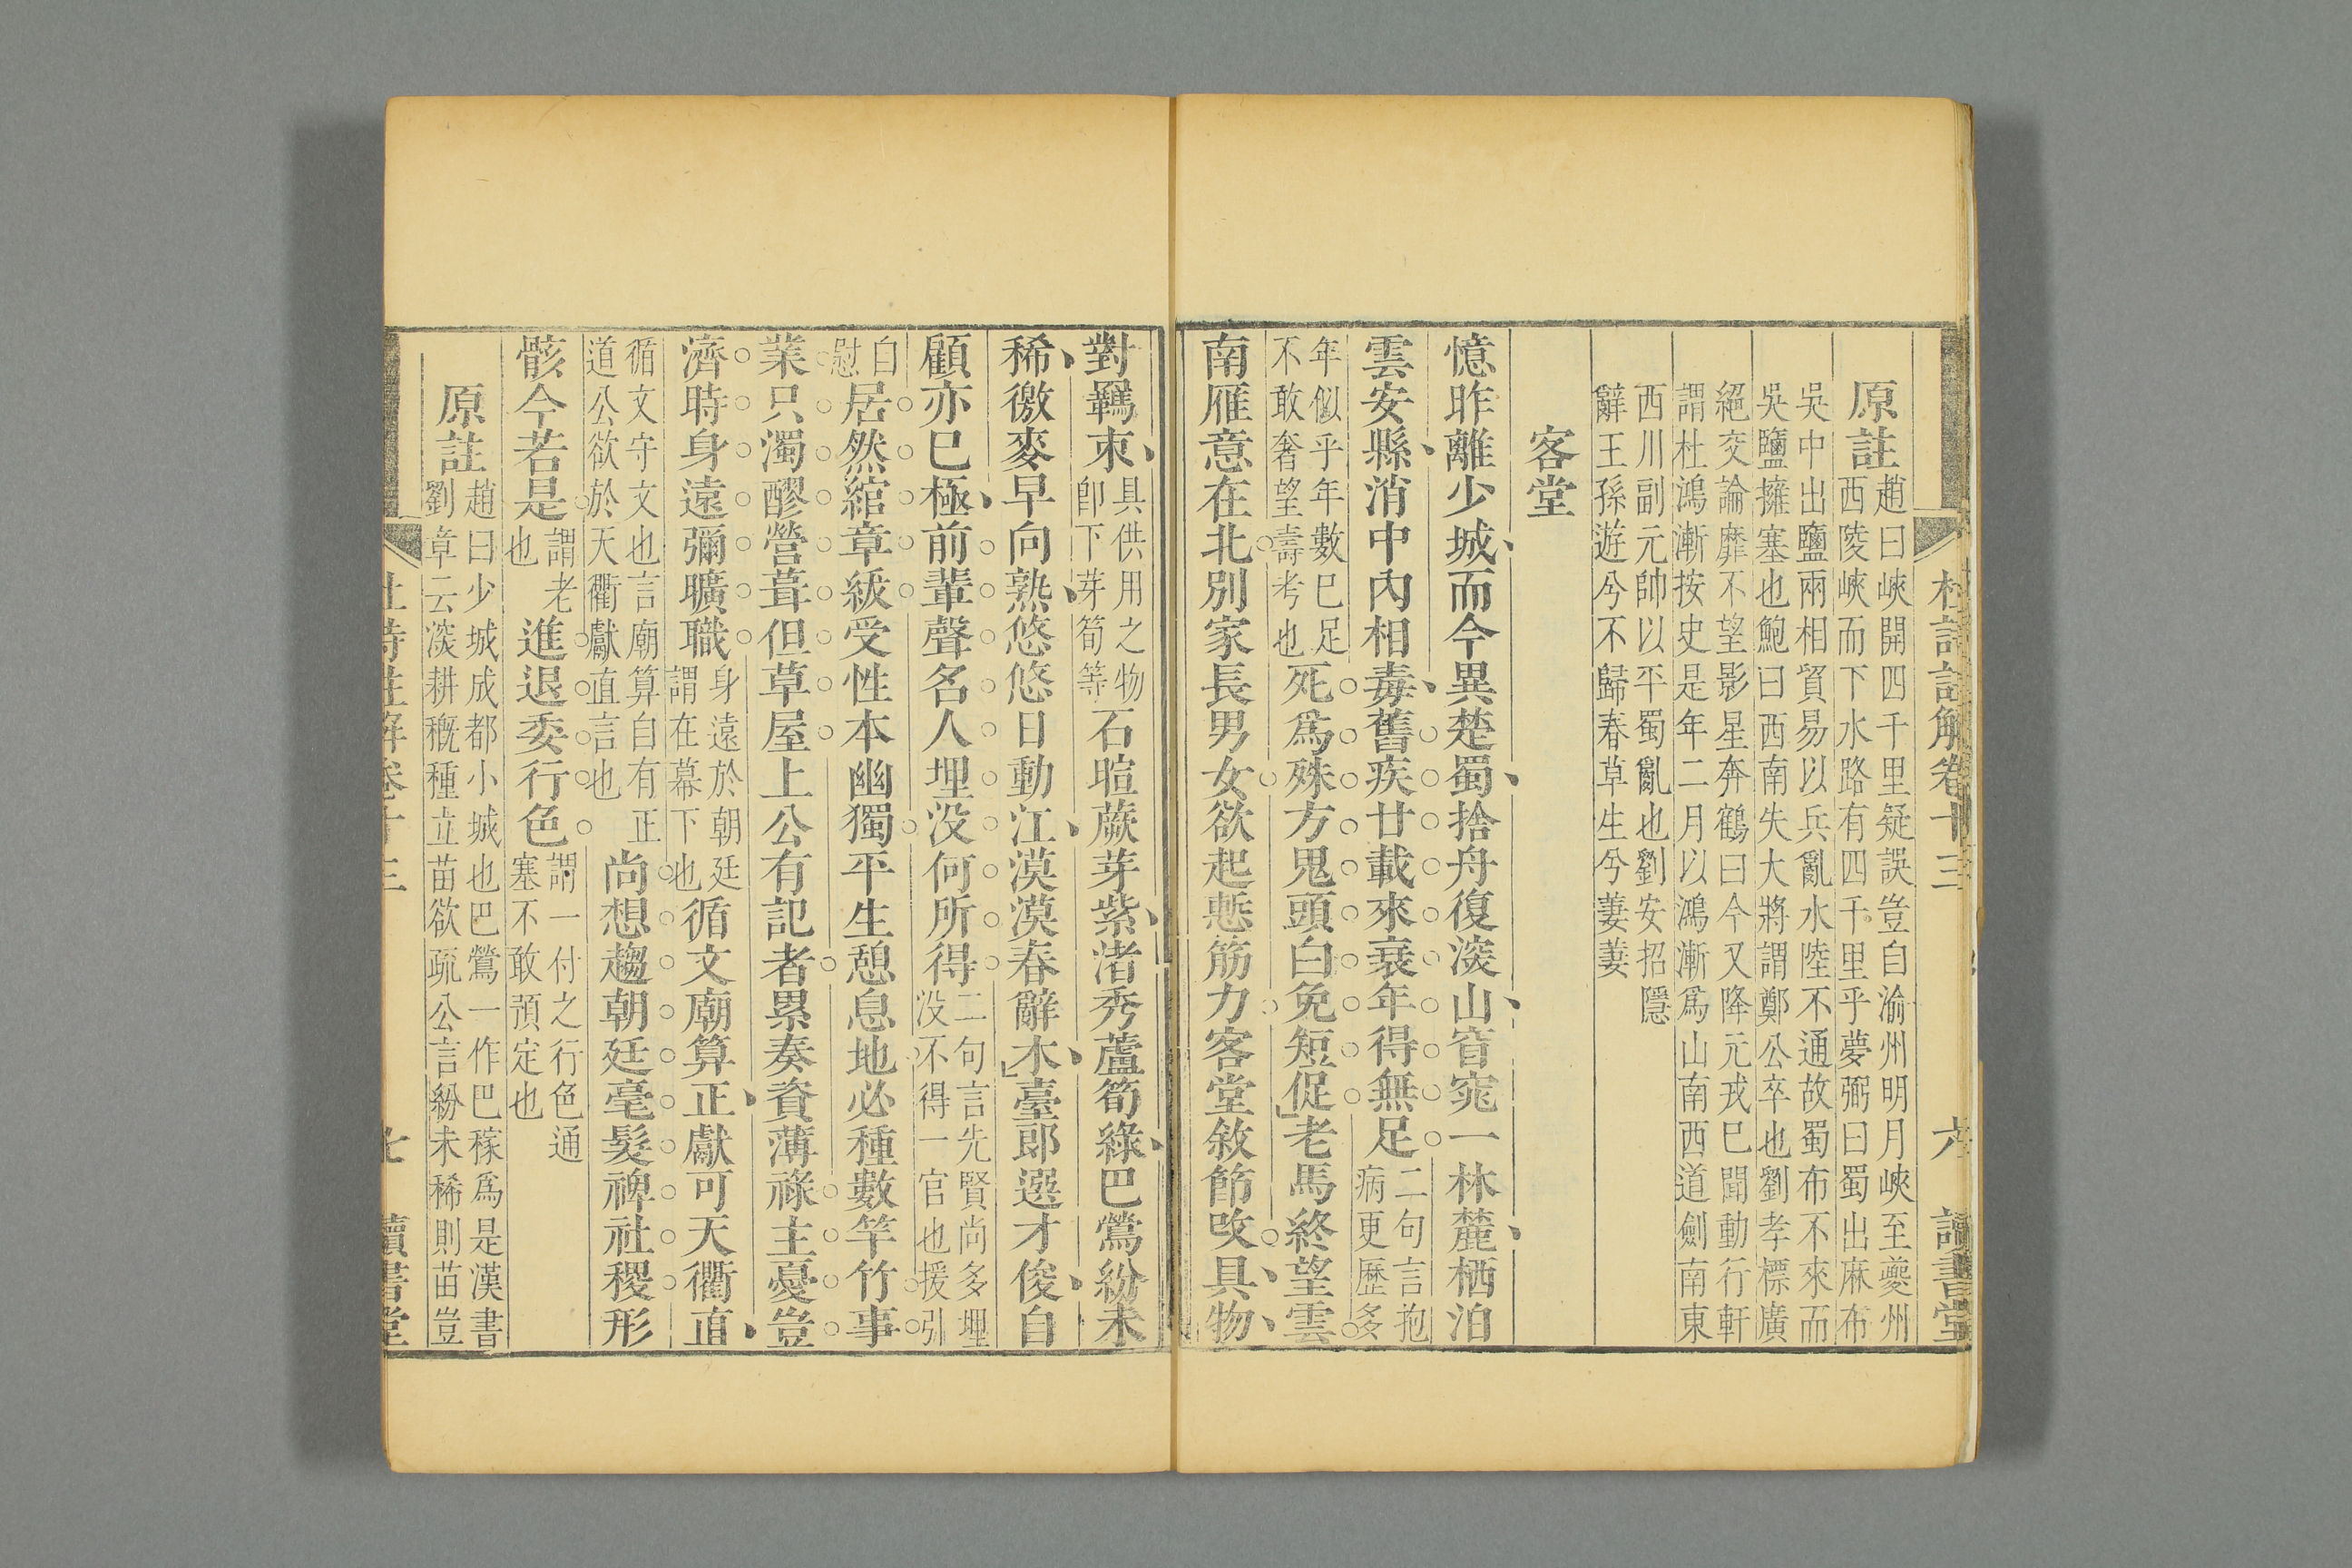 杜詩註解卷十三 六 讀書堂
原註
趙曰峽開四千里疑誤豈自渝州明月峽至夔州
西陵峽而下水路有四千里乎夢弼曰蜀出麻布
吳中出鹽兩相貿易以兵亂水陸不通故蜀布不來而
吳鹽擁塞也鮑曰西南失大將謂鄭公卒也劉孝標廣
絕交論靡不望影星奔鶴曰今又降元戎巳聞動行軒
謂杜鴻漸按史是年二月以鴻漸爲山南西道劍南東
西川副元帥以平蜀亂也劉安招隱
辭王孫遊兮不歸春草生兮萋萋
客堂
憶昨離少城而今異楚蜀捨舟復深山窅窕一林麓栖泊
雲安縣消中內相毒舊疾廿載來衰年得無足
二句言抱
病更歷多
年似乎年數巳足
不敢奢望壽考也
死爲殊方鬼頭白免短促老馬終望雲
南雁意在北別家長男女欲起慙筋力客堂敘節改具物
對羈束
具供用之物
卽下芽筍等
石暄蕨芽紫渚秀蘆筍綠巴鶯紛未
稀徼麥早向熟悠悠日動江漠漠春辭木臺郎選才俊自
顧亦巳極前輩聲名人埋没何所得
二句言先賢尚多埋
没不得一官也援引
自
慰
居然綰章紱受性本幽獨平生憩息地必種數竿竹事
業只濁醪營葺但草屋上公有記者累奏資薄祿主憂豈
濟時身遠彌曠職
身遠於朝廷
謂在幕下也
循文廟算正獻可天衢直
循文守文也言廟算自有正
道公欲於天衢獻直言也
尚想趨朝廷毫髮裨社稷形
骸今若是
謂老
也
進退委行色
謂一付之行色通
塞不敢預定也
原註
趙曰少城成都小城也巴鶯一作巴稼爲是漢書
劉章云深耕穊種立苗欲疏公言紛未稀則苗豈
杜詩註解卷十三 七 讀書堂